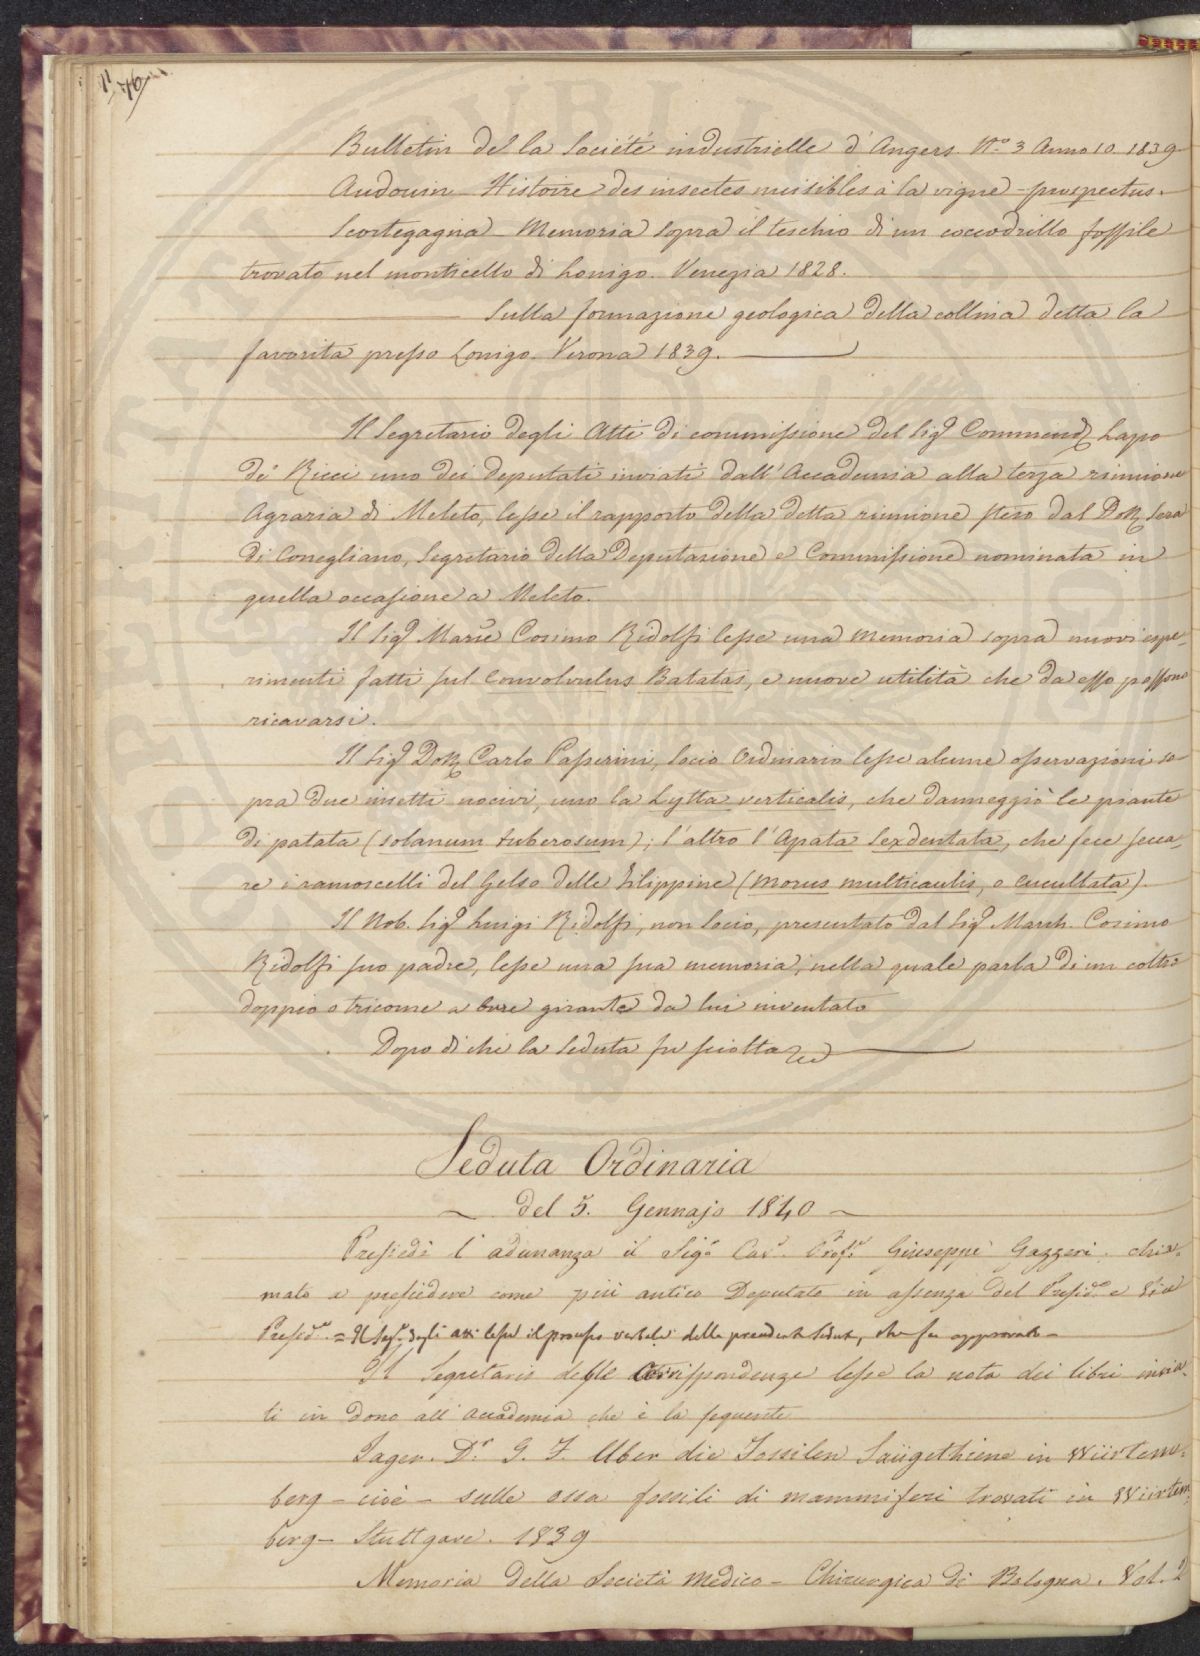 76
Bulletin de la Société industrielle d'Angers. N.o 3 Anno 10. 1839
Audouin - Histoire des insectes nuisibles à la vigne - prospectus.
Scortegagna - Memoria sopra il teschio di un coccodrillo fossile
trovato nel monticello di Lonigo. Venezia 1828.
Sulla formazione geologica della collina detta la
favorita presso Lonigo. Verona 1839.
Il Segretario degli Atti di commissione del Sigr Commend Lapo
de' Ricci uno dei deputati inviati dall'Accademia alla terza riunione
Agraria di Meleto, lesse il rapporto della detta riunione steso dal Dott Sera
di Conegliano, Segretario della Deputazione e Commissione nominata in
quella occasione a Meleto.
Il Sigr Marse Cosimo Ridolfi lesse una memoria sopra nuovi espe-
rimenti fatti sul Convolvulus Batatas, e nuove utilità che da esso possono
ricavarsi.
Il Sigr Dott Carlo Passerini, Socio Ordinario lesse alcune osservazioni so-
pra due insetti nocivi, uno la Lytta verticalis, che danneggiò le piante
di patata (solanum tuberosum); l'altro l'Apata Sexdentata, che fece secca-
re i ramoscelli del Gelso delle Filippine (Morus multicaulis, o cucullata).
Il Nob. Sigr Luigi Ridolfi, non Socio, presentato dal Sigr March. Cosimo
Ridolfi suo padre, lesse una sua memoria, nella quale parla di un coltro
doppio o tricome a bure girante da lui inventato
Dopo di che la Seduta fu sciolta
Seduta Ordinaria
~ del 5. Gennajo 1840 ~
Presiedè l'adunanza il Sigr Cavr Profr Giuseppe Gazzeri, chia-
mato a presiedere come più antico Deputato in assenza del Preside e Vice
Preside = Il Segr degli atti lesse il processo verbale della precedente Seduta, che fu approvato -
Il Segretario delle Corrispondenze lesse la nota dei libri invia-
ti in dono all'Accademia che è la seguente
Jager. Dr G. F. Uber die Fossilen Saügethiene in Würtem-
berg - cioè - sulle ossa fossili di mammiferi trovati in Würtem-
berg - Stuttgare. 1839
Memoria della Società Medico - Chirurgica di Bologna. Vol. 2